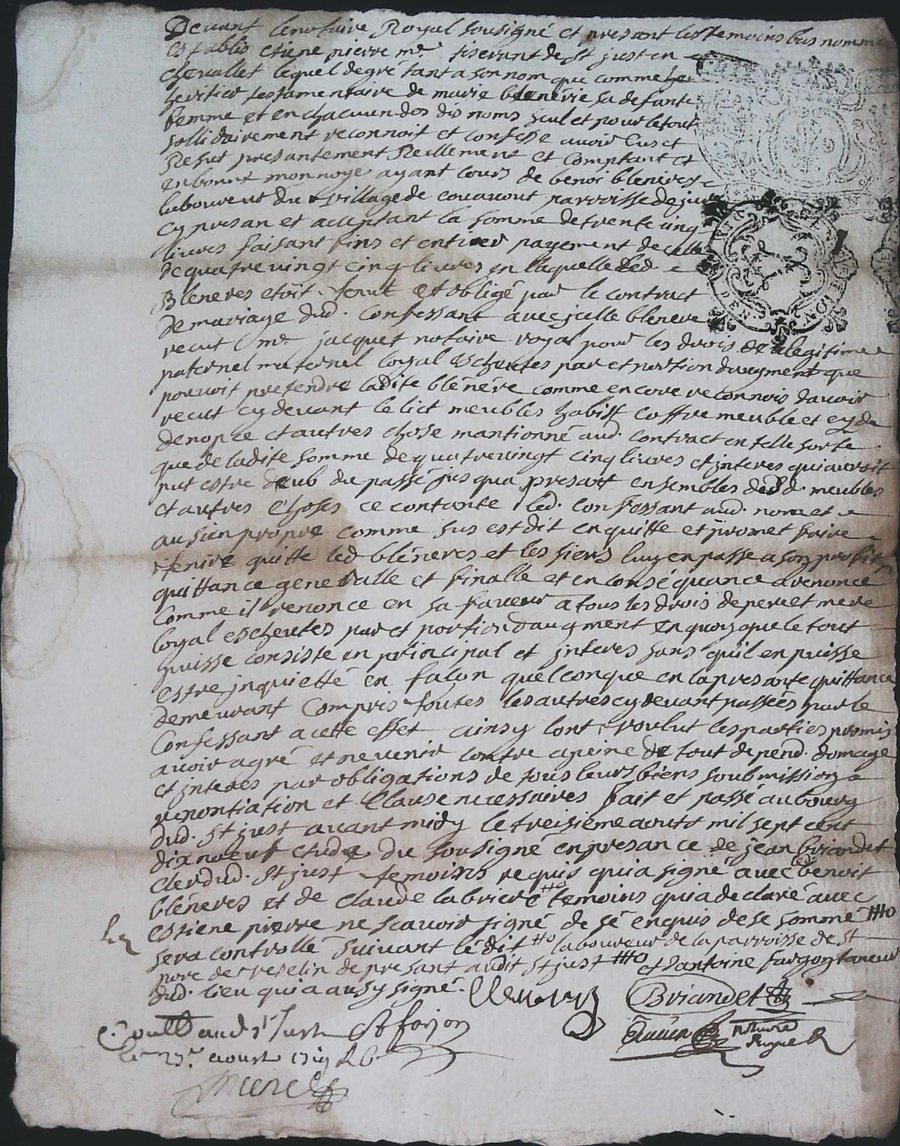 Devant le notaire Royal sousigné et presant les temoins bas nommes
establis etiene pierre mre tiserant de st just en
chevallet lequel degré tant a son nom que comme
heritier testamentaire de marie blenérie sa defante
femme et en chacun dos dis noms seul et pour le tout
sollidairement reconnoit et confesse avoir eus et
Resut presantement Reellement et comptant et
en bonne monnoye ayant cours de benoi bleneres
laboureur du village de couavout parroisse de
cy presan et aceptant la somme de trente cinq
livres faisant fins et entier payement de celle
de quatre vingt cinq livres en laquelle led
Bleneres etoit tenut et obligé par le contract
de mariage dud. confessant avec jcelle blenere
recut mre jacquet notaire royal pour les drois de legitime
paternel maternel loyal escheutes par et portion daugment que
pouvoit pretendre ladite blénére comme encore reconnois davoir
recut cy devant le lict meubles habist coffre meuble et
de nopce et autres chose mantionné aud. contract en telle sorte
que de ladite somme de quatre vingt cinq livres et jnteres qui auroit
put estre deub du passé jus qua presant ensembles desd. meubles
et autres choses ce contante led. confessant aud. nom et
au sien propre comme sus est dit en quitte et promet faire
tenire quitte led blénéres et les siens luy en passe a son profist
quittance generalle et finalle et en consequance a renonce
comme il renonce en sa faveur a tous les drois de pere et mere
loyal escheutes par et portion daugment en quoy que le tout
puisse consiste en principal et jnteres sans quil en puisse
estre jnquietté en facun quelconque en la presante quittance
demeurant compris toutes les autres cy devant passées par le
confessant a cette effet ainsy lont voulut les parties promis
avoir agré et ne venir contre apeine de tout depend. domage
et jnteres par obligations de tous leurs biens soubmission
renontiation et clause necessaires fait et passé au bourg
dud. st just avant midy le treisiéme aoust mil sept cent
dix noeuf etude du sousigné en presance de jean briandet
clerdud. st just temoins requis quia signé avec benoit
bléneres et de claude labrire temoins quia declaré avec
estiene pierre ne scavoir signé de sé enquis de se sommé
sera controllé suivant lédit laboureur de la parroisse de st
de present audit st just et dantoine fargon taneur
dud. lieu qui a aussy signé.
Briandet
Controllé aud st Just
le 23e aoust 1719
notaire